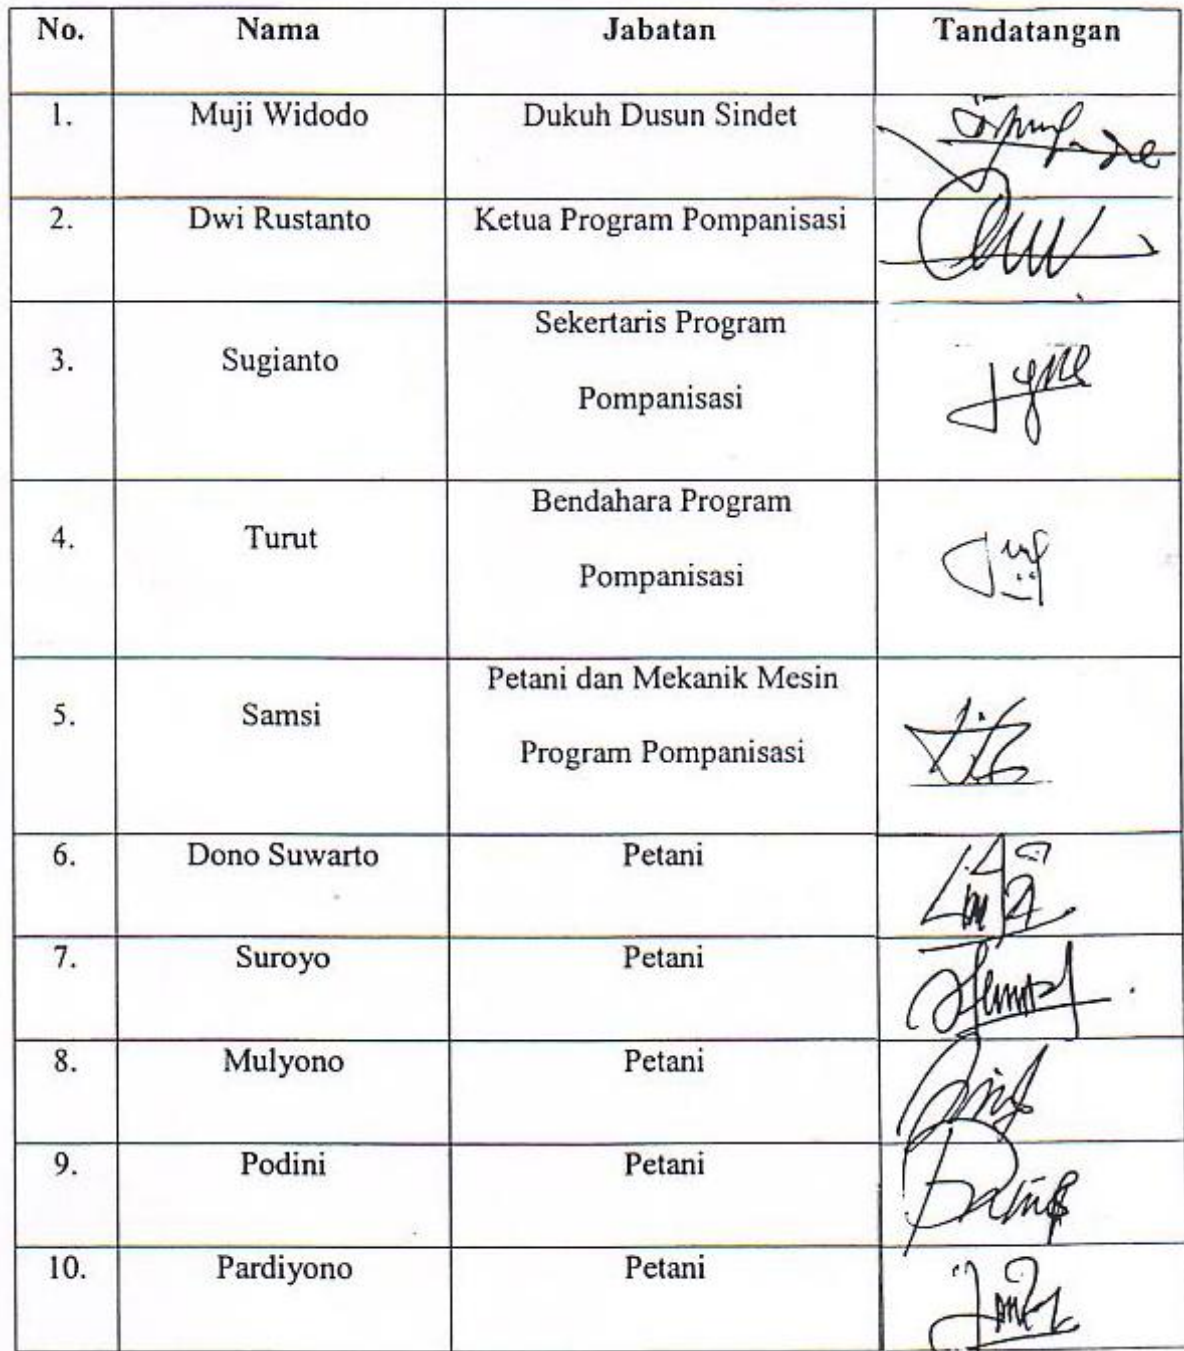 No. Nama Jabatan Tandatangan
1. Muji Widodo Dukuh Dusun Sindet
2. Dwi Rustanto Ketua Program Pompanisasi
3. Sugianto Sekertaris Program
Pompanisasi
4. Turut Bendahara Program
Pompanisasi
5. Samsi Petani dan Mekanik Mesin
Program Pompanisasi
6. Dono Suwarto Petani
7. Suroyo Petani
8. Mulyono Petani
9. Podini Petani
10. Pardiyono Petani